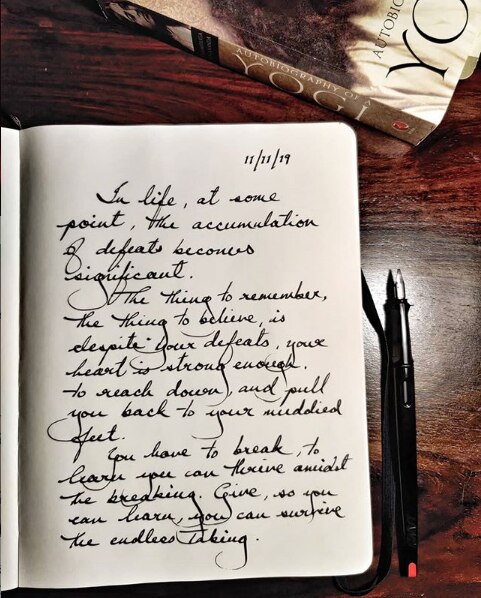 AUTOBIOGRAPHY OF A
YOGI
YO
11/11/19
In life, at some
point, the accumulation
of defeats becomes
significant.
The thing to remember,
the thing to believe, is
despite your defeats, your
heart is strong enough.
to reach down, and pull
you back to your muddied
feet.
You have to break, to
learn you can thrive amidst
the breaking. Give, so you
can learn, you can survive
the endless taking.